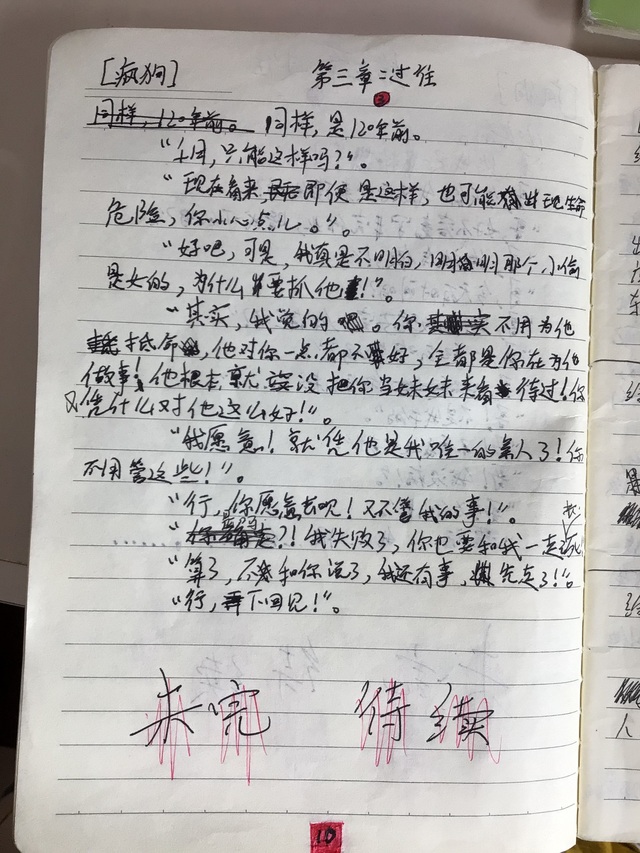 [疯狗] 第三章:过往
②
同样,120年前。 同样,是120年前。
“，只能这样吗?”。
“现在看来,即便是这样,也可能出现生命
危险,你小心点儿。”。
“好吧,可是,我真是不明白,明明那个小偷
是女的,为什么要抓他!”。
“其实,我觉的。你不用为他
抵命,他对你一点都不好,全都是你在为他
做事!他根本就没把你当妹妹来看待过!你
又凭什么对他这么好!”。
“我愿意!就凭他是我唯一的亲人了!你
不用管这些!”。
“行,你愿意去呗!又不管我的事!”。
“?!我失败了,你也要和我一起
“算了,不和你说了,我还有事,先走了!”。
“行,下回见!”。
未完 待续
10